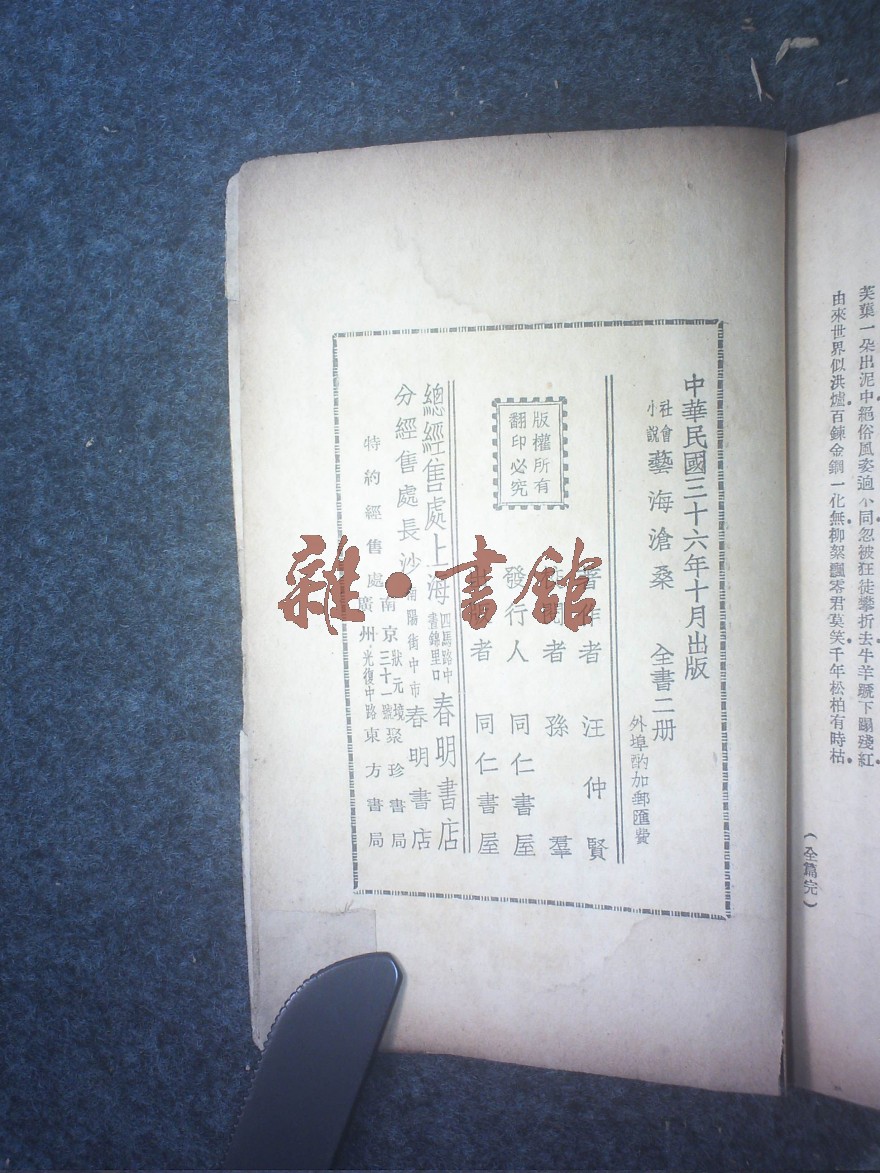 芙蕖一朵出泥中絕俗風姿逈不同忽被狂徒攀折去牛羊蹏下蹋殘紅
由來世界似洪爐百鍊金鋼一化無柳絮飄零君莫笑千年松柏有時枯
（全篇完）
中華民國三十六年十月出版
社會小說 藝海滄桑 全書二册
外埠酌加郵匯費
著作者 汪仲賢
者 孫羣
發行人 同仁書屋
者 同仁書屋
版權所有
翻印必究
總經售處 上海四馬路中畫錦里口 春明書店
分經售處 長沙南陽街中市 春明書店
特約經售處 南京狀元境三十一號 聚珍書局
廣州光復中路 東方書局
雜·書館